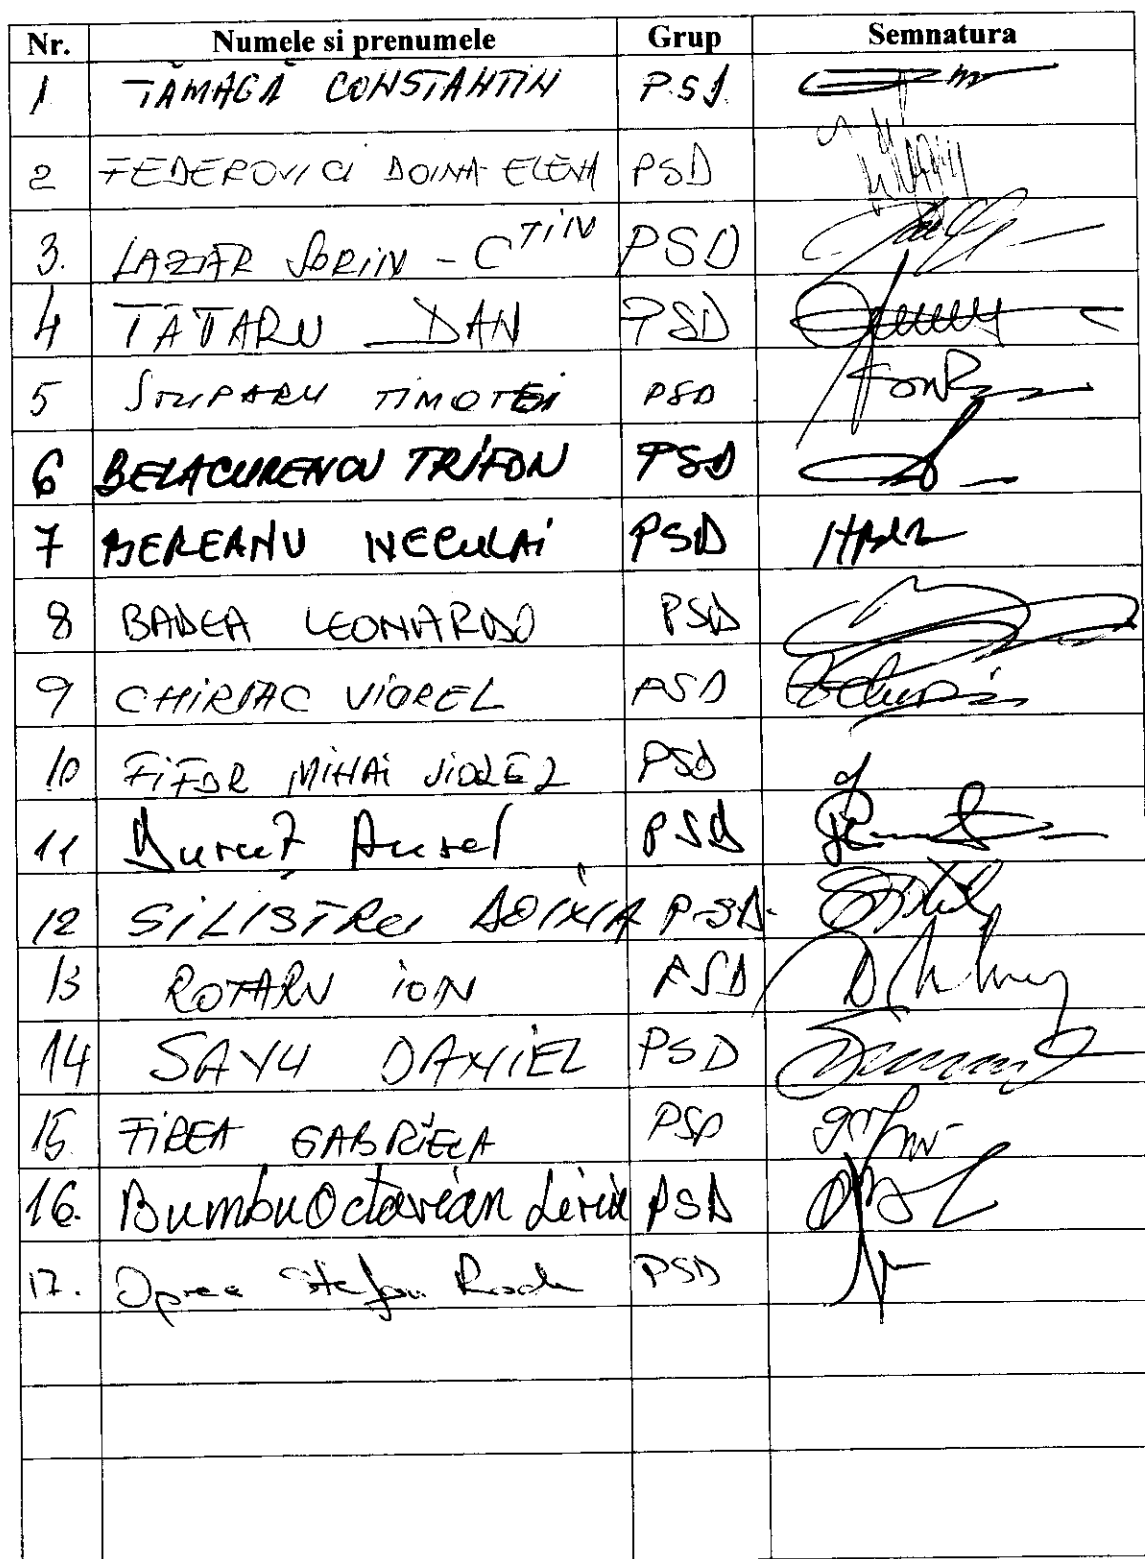 Nr. Numele si prenumele Grup Semnatura
1 TĂMAGĂ CONSTANTIN PSD
2 FEDEROVICI DOINA-ELENA PSD
3. LAZĂR SORIN - CTIN PSD
4 TĂTARU DAN PSD
5 STUPARU TIMOTEI PSD
6 BELACURENCU TRIFON PSD
7 BEREANU NECULAI PSD
8 BADEA LEONARDO PSD
9 CHIRIAC VIOREL PSD
10 FIFOR MIHAI VIOREL PSD
11 Aurel PSD
12 SILISTRU DOINA PSD
13 ROTARU ION PSD
14 SAVU DANIEL PSD
15. FIREA GABRIELA PSD
16. Bumbu Octavian Liviu PSD
17. Oprea Stefan Radu PSD